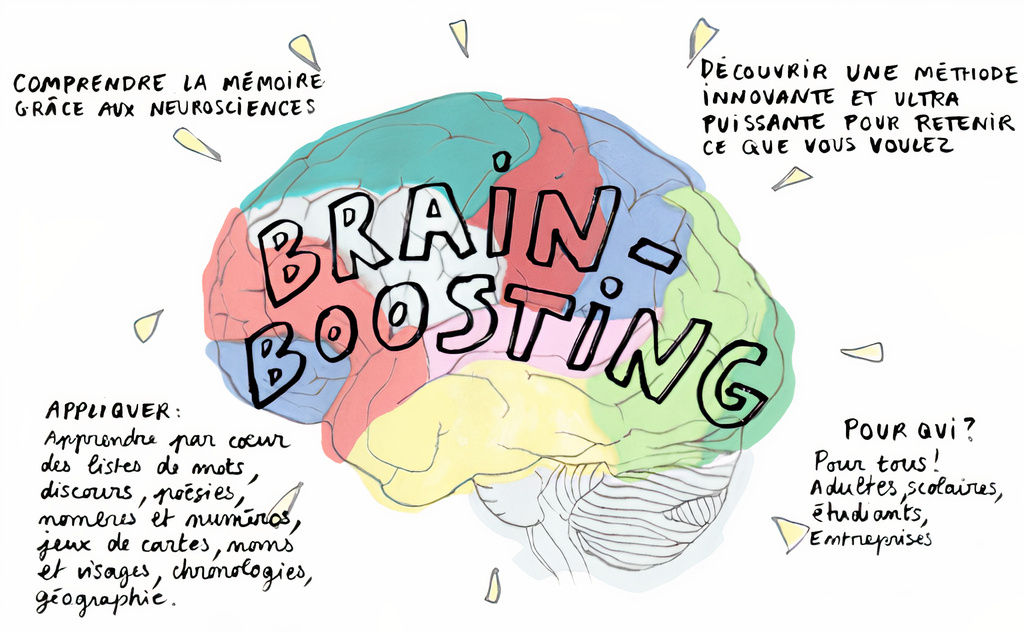 COMPRENDRE LA MÉMOIRE
GRÂCE AUX NEUROSCIENCES
DÉCOUVRIR UNE MÉTHODE
INNOVANTE ET ULTRA
PUISSANTE POUR RETENIR
CE QUE VOUS VOULEZ
BRAIN-
BOOSTING
APPLIQUER:
Apprendre par cœur
des listes de mots,
discours, poésies,
nombres et numéros,
jeux de cartes, noms
et visages, chronologies,
géographie.
POUR QUI?
Pour tous!
Adultes, scolaires,
étudiants,
Entreprises